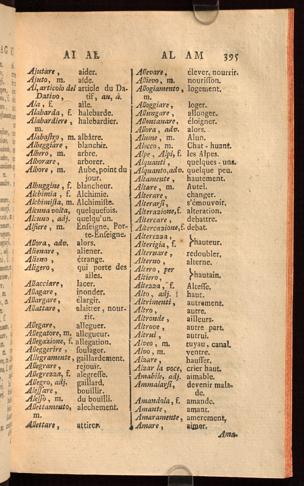 AI AL
AL AM 395
Ajutare, aider.
Ajuto, m. aide.
Al, articolo del article du Da-
Dativo, tif, au, à.
Ala, f. aile.
Alabarda, f. halebarde.
Alabardiere, halebardier.
m.
Alabastro, m. albâtre.
Albeggiare, blanchir.
Albero, m. arbre.
Alborare, arborer.
Albore, m. Aube, point du
jour.
f. blancheur.
Alchimia, f. Alchimie.
Alchimista, m. Alchimiste.
Alcuna volta, quelquefois.
Alcuno, adj. quelqu'un.
Alfiere, m. Enseigne, Por-
te-Enseigne.
Allora, adv. alors.
Alienare, aliener.
étrange.
Aligero, qui porte des
ailes.
Allacciare, lacer.
Allagare, inonder.
Allargare, élargir.
Allattare, alaitter, nour-
rir.
Allegare, alleguer.
Allegatore, m. allegueur.
Allegazione, f. allegation.
Alleggerire, soulager.
Allegramente, gaillardement.
Allegrare, rejouir.
Allegrezza, f. alegresse.
Allegro, adj. gaillard.
Allessare, bouillir.
Allesso, m. du bouilli.
Allettamento, alechement.
m.
Allettare, attirer.
Allevare, élever, nourrir.
Allievo, m. nourisson.
Allogiamento, logement.
m.
Alloggiare, loger.
Allungare, allonger.
Allontanare, éloigner.
Allora, adv. alors.
Allume, m. Alun.
Alocco, m. Chat-huant.
Alpe, Alpi, f. les Alpes.
Alquanti, quelques-uns.
Alquanto, adv. quelque peu.
Altamente, hautement.
Altare, m. Autel.
Alterare, changer.
Alterarsi, s'émouvoir.
Alterazione, f. alteration.
Altercare, debattre.
Altercazione, f. debat.
Alterezza,
Alterigia, f. } hauteur.
redoubler.
Alterno, alterne.
Altero, per
Altiero, } hautain.
Altezza, f. Altesse.
Alto, adj. haut.
Altrimenti, autrement.
Altro, autre.
Altronde, ailleurs.
Altrove, autre part.
Altrui, autrui.
Alveo, m. tuyau, canal.
Alvo, m. ventre.
Alzare, hausser.
Alzar la voce, crier haut.
Amabile, adj. aimable.
Ammalarsi, devenir mala-
de.
Amandola, f. amande.
Amante, amant.
Amaramente, amerement,
Amare, aimer.
Ama-